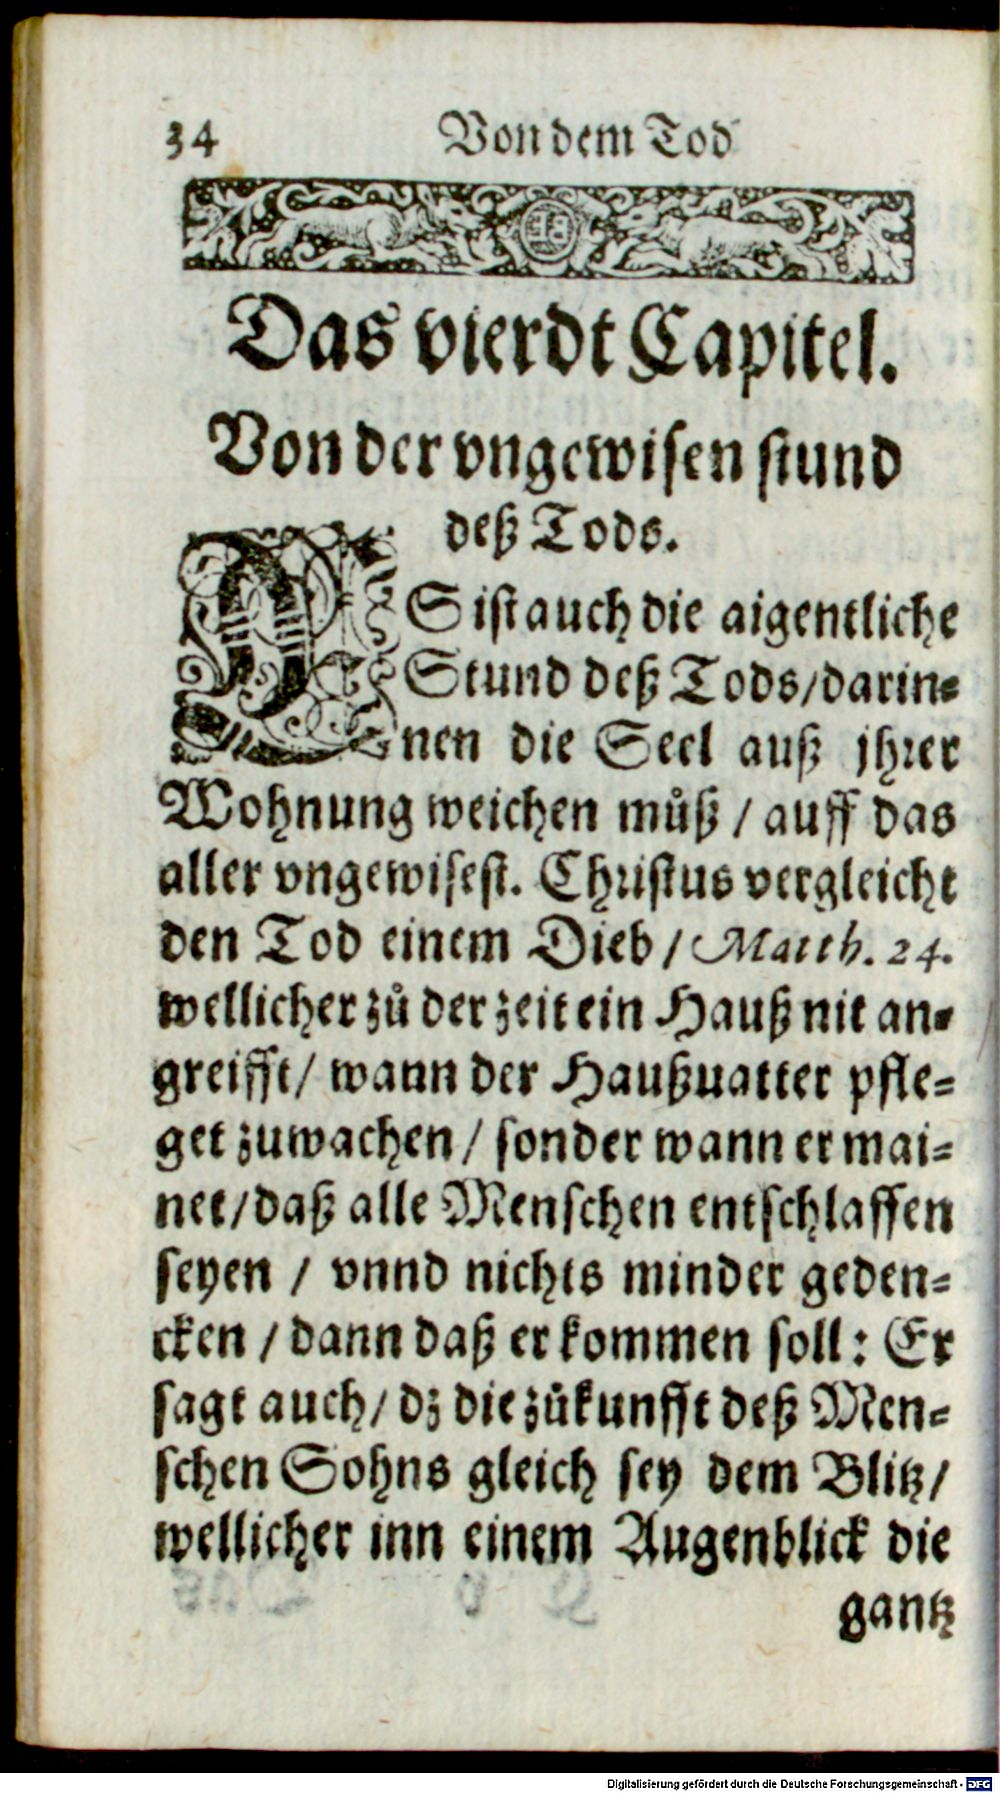 34 Von dem Tod
Das vierdt Capitel.
Von der vngewisen stund
deß Tods.
ES ist auch die aigentliche
Stund deß Tods/darin-
nen die Seel auß jhrer
Wohnung weichen můß / auff das
aller vngewisest. Christus vergleicht
den Tod einem Dieb / Matth. 24.
wellicher zů der zeit ein Hauß nit an-
greifft/ wann der Haußuatter pfle-
get zuwachen / sonder wann er mai-
net/daß alle Menschen entschlaffen
seyen / vnnd nichts minder geden-
cken / dann daß er kommen soll: Er
sagt auch/ dz die zůkunfft deß Men-
schen Sohns gleich sey dem Blitz/
wellicher inn einem Augenblick die
gantz
Digitalisierung gefördert durch die Deutsche Forschungsgemeinschaft - DFG